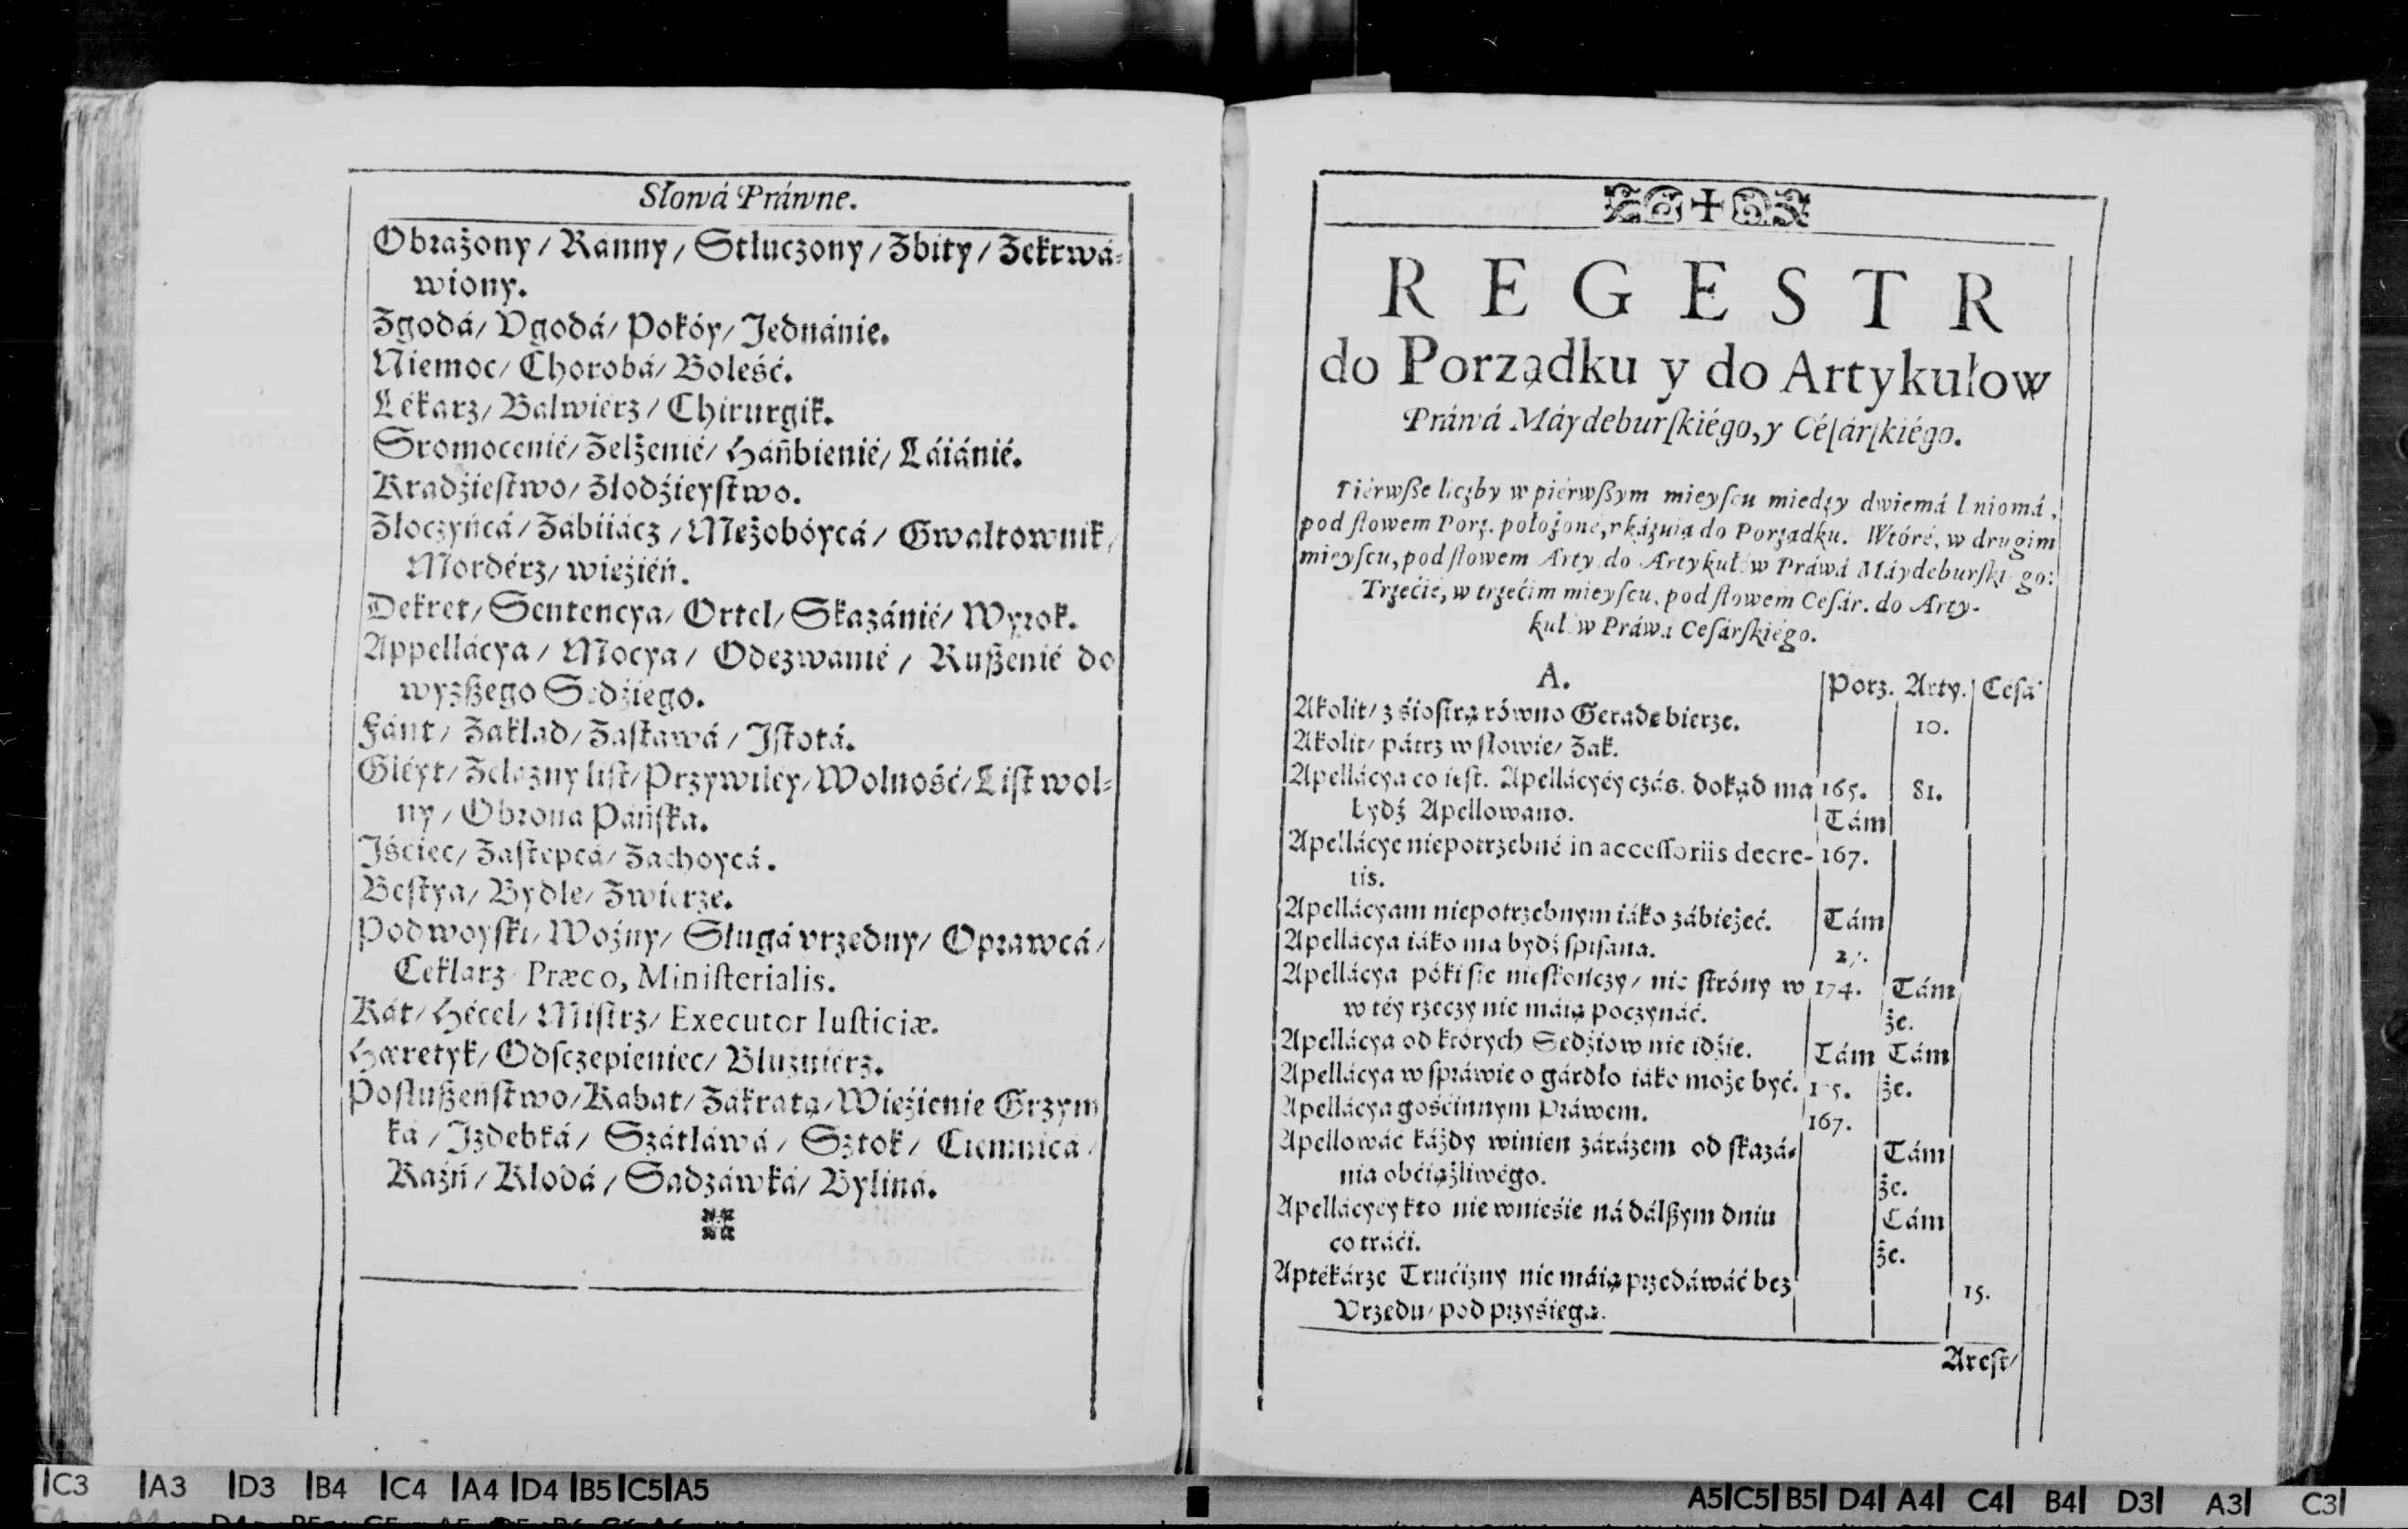 Słowá Práwne.
Obrażony / Ranny / Stłuczony / Zbity / Zekrwá-
wiony.
Zgodá / Vgodá / Pokóy / Jednánie.
Niemoc / Chorobá / Boleść.
Lékarz / Balwiérz / Chirurgik.
Sromocenié / Zelżenié / Háńbienié / Láiánié.
Kradźieſtwo / Złodźieyſtwo.
Złoczyńcá / Zábiiácz / Mężobóycá / Gwałtownik /
Mordérz / więźiéń.
Dekret / Sentencya / Ortel / Skazánié / Wyrok.
Appellácya / Mocya / Odezwánié / Rußenié do
wyzßego Sędźiego.
Fánt / Zakład / Zaſtawá / Jſtotá.
Gléyt / Żelazny liſt / Przywiléy / Wolność / Liſt wol-
ny / Obrona Páńſka.
Jśćiec / Zaſtępcá / Zachoycá.
Beſtya / Bydlę / Zwierzę.
Podwoyſki / Woźny / Sługá vrzędny / Oprawcá /
Ceklarz / Præco, Miniſterialis.
Kát / Hécel / Miſtrz / Executor Iuſticiæ.
Hæretyk / Odſczepieniec / Bluźniérz.
Poſłußeńſtwo / Kabat / Zákratą / Więźienie Grzym
ká / Jzdebká / Szátláwá / Sztok / Ciemnicá /
Kaźń / Kłodá / Sadzáwká / Byliná.
REGESTR
do Porządku y do Artykułow
Práwá Máydeburſkiégo, y Céſárſkiégo.
Piérwße liczby w piérwßym mieyſcu między dwiemá liniomá,
pod ſłowem Porz. położoné, vkázuią do Porządku. Wtóré, w drugim
mieyſcu, pod ſłowem Arty. do Artykułów Práwá Máydeburſkiégo:
Trzećié, w trzećim mieyſcu, pod ſłowem Ceſár. do Arty-
kułów Práwá Ceſárſkiégo.
A. Porz. Arty. Céſá
Akolit / z śioſtrą równo Geradę bierze. 10.
Akolit / pátrz w ſłowie / Żak.
Apellácya co ieſt. Apellácyéy czás. dokąd ma 165. 81.
bydź Apellowano. Tám
Apellácye niepotrzebné in acceſſoriis decre- 167.
tis.
Apellácyam niepotrzebnym iáko zábieżeć. Tám
Apellácya iáko ma bydź ſpiſana.
Apellácya póki ſię nieſkończy / nic ſtróny w 174. Tám
w téy rzeczy nic máią poczynáć. że.
Apellácya od których Sędźiow nie idźie. Tám Tám
Apellácya w ſpráwie o gárdło iáko może być. że.
Apellácya gośćinnym Práwem. 167.
Apellowáć káżdy winien zárázem od ſkazá- Tám
nia obćiążliwégo. że.
Apellácyéy kto nie wnieśie ná dálßym dniu Tám
co tráći. że.
Aptékárze Trućizny nie máią przedáwáć bez 15.
Vrzędu / pod przyśięgą.
Areſt /
C3 A3 D3 B4 C4 A4 D4 B5 C5 A5
A5 C5 B5 D4 A4 C4 B4 D3 A3 C3